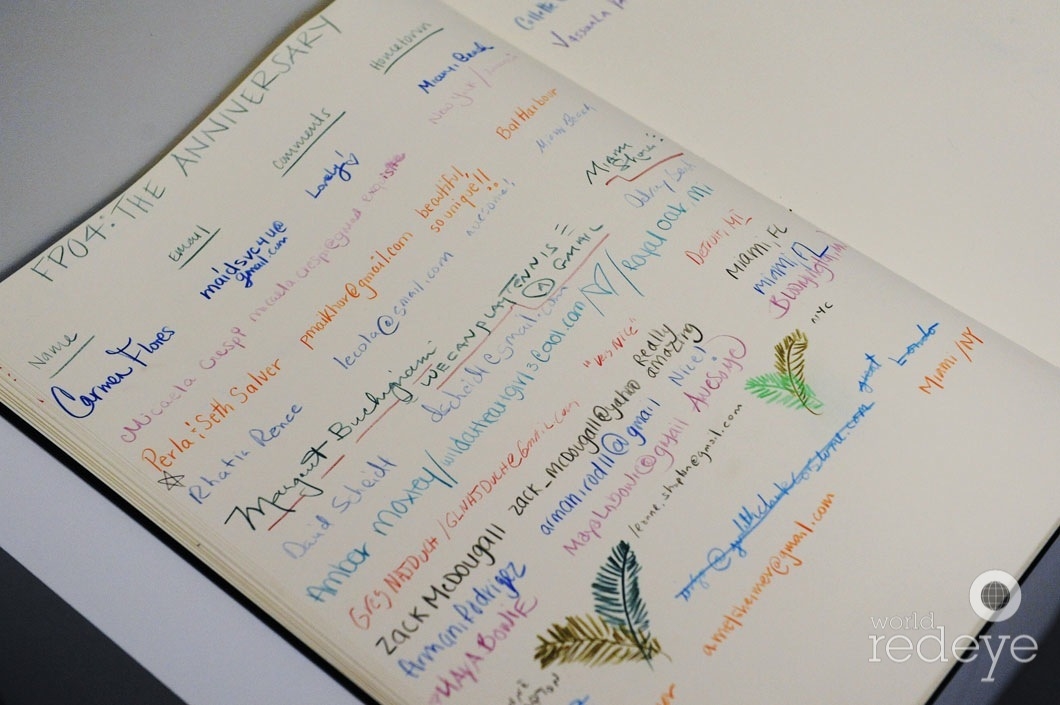 FP04: THE ANNIVERSARY
Name email comments Hometown
Carmen Flores maidsvc4u@gmail.com Lovely! Miami Beach
Micaela Crespi micaela crespi@gmail exquisite New York /
Perla & Seth Salver pmalkhor@gmail.com beautiful, so unique!! Bal Harbour
Rhatia Rence lecola@gmail.com awesome! Miami Beach
Margaret WE CAN PLAY TENNIS @ GMAIL Miami Shores
David Scheidt dscheidt@gmail.com
Amber Moxley / wildatheartgirl3@aol.com / Royal Oak MI
Greg NAJDUCH / GLNAJDUCH@GMAIL.COM "VERY NICE" DETROIT, MI
ZACK McDOUGALL zack_mcdougall@yahoo Really amazing MIAMI, FL
Armani Rodrigez armanirod11@gmail Nice! Miami, FL
MAYA BOWIE Mayalnbowie@gmail Awesome
@gmail.com NYC
guest London
@gmail.com Miami/NY
Collette
world
redeye